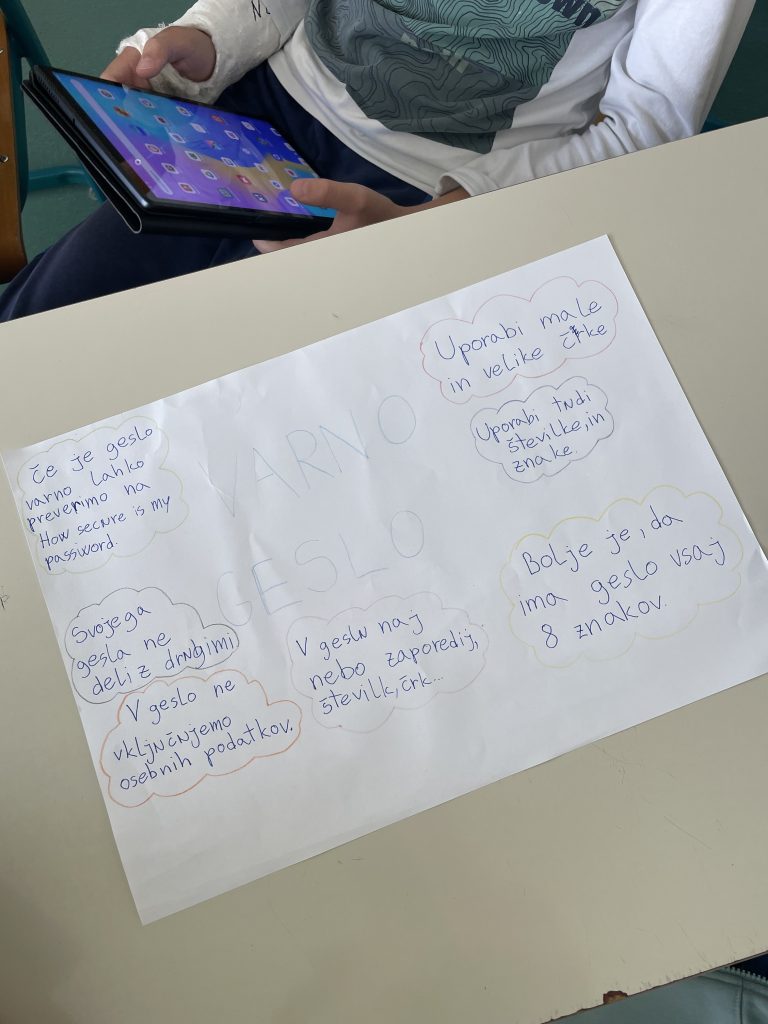 VARNO
GESLO
Uporabi male
in velike črke
Uporabi tudi
številke, in
znake.
Če je geslo
varno lahko
preverimo na
How secure is my
password.
Bolje je, da
ima geslo vsaj
8 znakov.
Svojega
gesla ne
deli z drugimi
V geslu naj
nebo zaporedij,
številk, črk...
V geslo ne
vključujemo
osebnih podatkov.